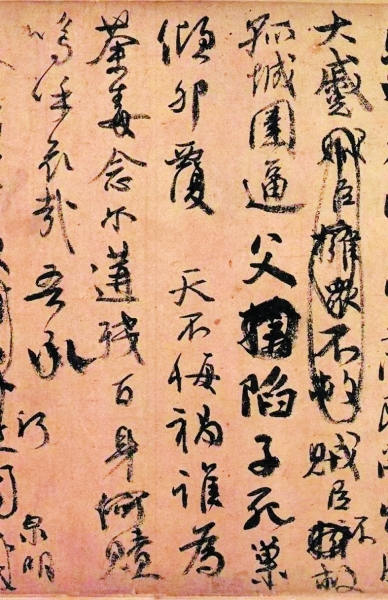 大蹙賊臣擁衆不救賊臣不救
孤城圍逼父陷子死巢
傾卵覆 天不悔禍誰為
荼毒念爾遘殘百身何贖
嗚呼哀哉吾承
泉明